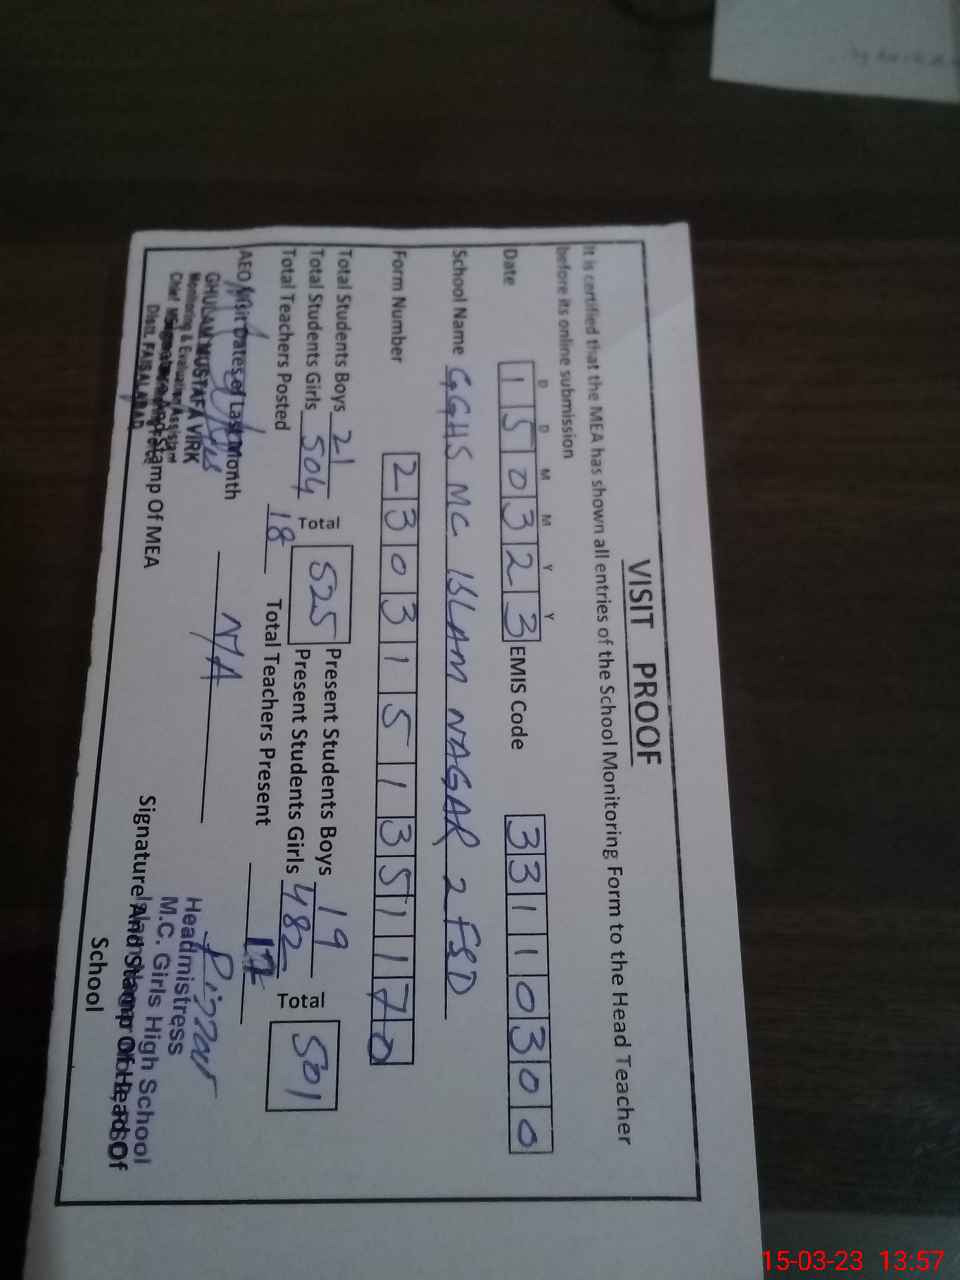 VISIT PROOF
It is certified that the MEA has shown all entries of the School Monitoring Form to the Head Teacher
before its online submission
D D M M Y Y
Date 150323 EMIS Code 33110300
School Name GGHS MC ISLAM NAGAR 2 FSD
Form Number 2303151351170
Total Students Boys 21 Total 525 Present Students Boys 19 Total 501
Total Students Girls 504 Present Students Girls 482
Total Teachers Posted 18 Total Teachers Present 17
AEO Visit Dates of Last Month N/A
GHULAM MUSTAFA VIRK
Monitoring & Evaluation Assistant
Distt. FAISALABAD
Stamp Of MEA
Headmistress
M.C. Girls High School
Signature And Stamp Of Head Of
School
15-03-23 13:57